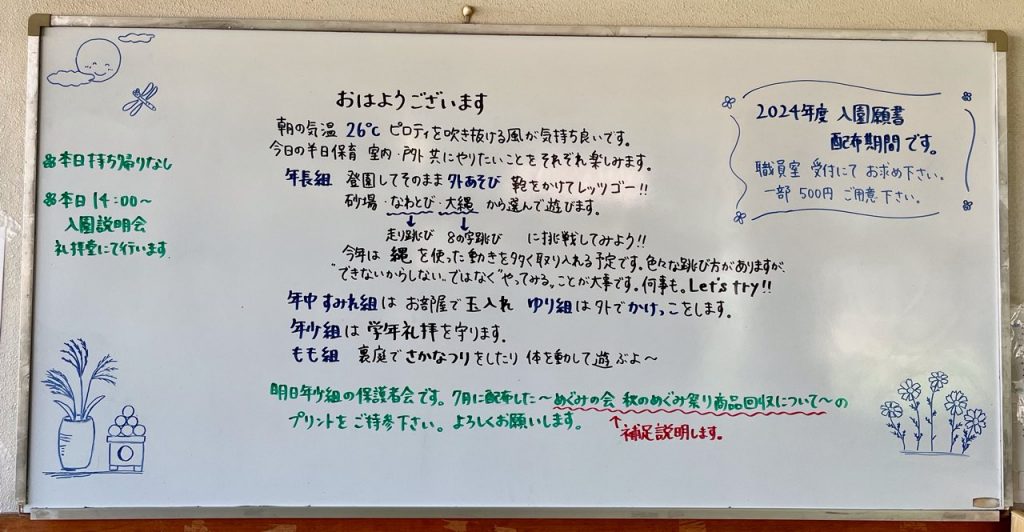 おはようございます
朝の気温 26℃ ピロティを吹き抜ける風が気持ち良いです。
今日の半日保育 室内・戸外共にやりたいことをそれぞれ楽しみます。
年長組 登園してそのまま外あそび 鞄をかけてレッツゴー!!
砂場・なわとび・大縄 から選んで遊びます。
走り跳び 8の字跳び に挑戦してみよう!!
今年は 縄 を使った動きを多く取り入れる予定です。色々な跳び方がありますが、
"できないからしない"ではなく"やってみる"ことが大事です。何事も。Let's try!!
年中 すみれ組は お部屋で 玉入れ ゆり組は外でかけっこをします。
年少組は 学年礼拝を守ります。
もも組 裏庭でさかなつりをしたり 体を動かして遊ぶよ〜
明日年少組の保護者会です。7月に配布した〜めぐみの会 秋のめぐみ祭り商品回収について〜の
プリントをご持参下さい。よろしくお願いします。
↑補足説明します。
本日持ち帰りなし
本日 14:00〜
入園説明会
礼拝堂にて行います
2024年度 入園願書
配布期間です。
職員室 受付にて お求め下さい。
一部 500円 ご用意下さい。